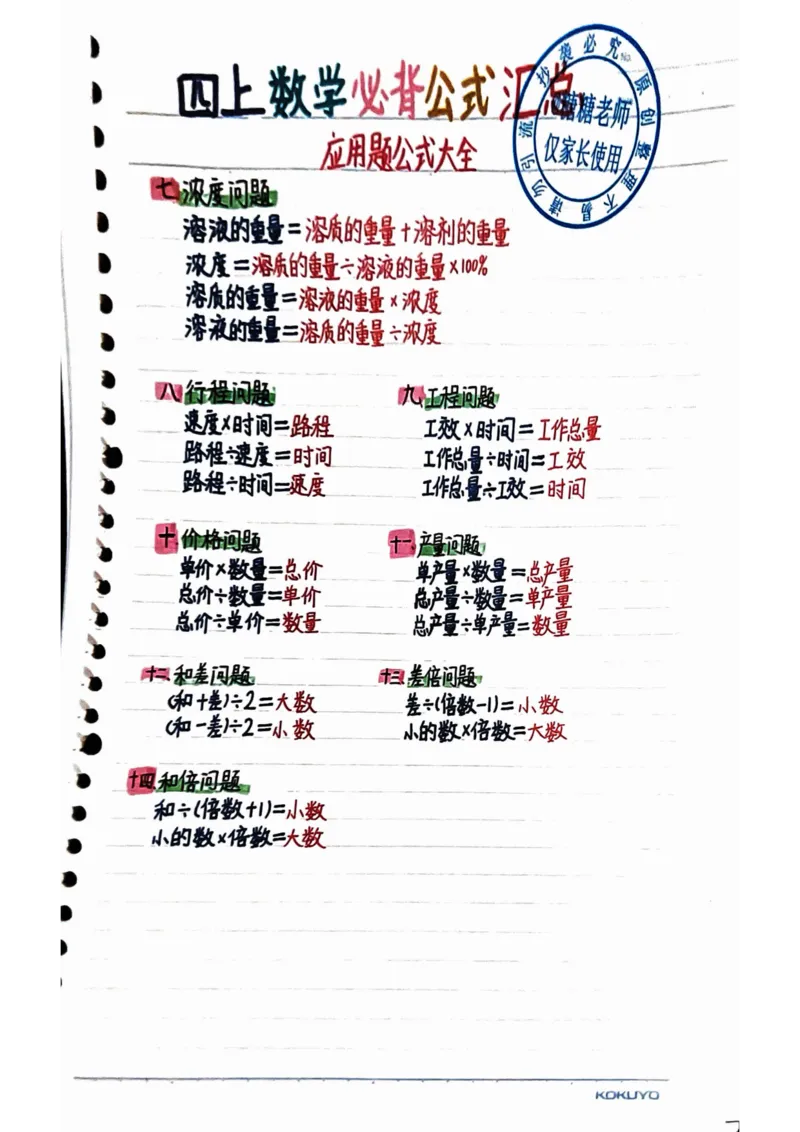 四上数学必背公式汇总
应用题公式大全
抄袭必究
原创整理不易
请勿引流
糖糖老师
仅家长使用
No.
七 浓度问题
溶液的重量=溶质的重量+溶剂的重量
浓度=溶质的重量÷溶液的重量×100%
溶质的重量=溶液的重量×浓度
溶液的重量=溶质的重量÷浓度
八 行程问题
速度×时间=路程
路程÷速度=时间
路程÷时间=速度
九 工程问题
工效×时间=工作总量
工作总量÷时间=工效
工作总量÷工效=时间
十 价格问题
单价×数量=总价
总价÷数量=单价
总价÷单价=数量
十一 产量问题
单产量×数量=总产量
总产量÷数量=单产量
总产量÷单产量=数量
十二 和差问题
(和+差)÷2=大数
(和-差)÷2=小数
十三 差倍问题
差÷(倍数-1)=小数
小的数×倍数=大数
十四 和倍问题
和÷(倍数+1)=小数
小的数×倍数=大数
KOKUYO